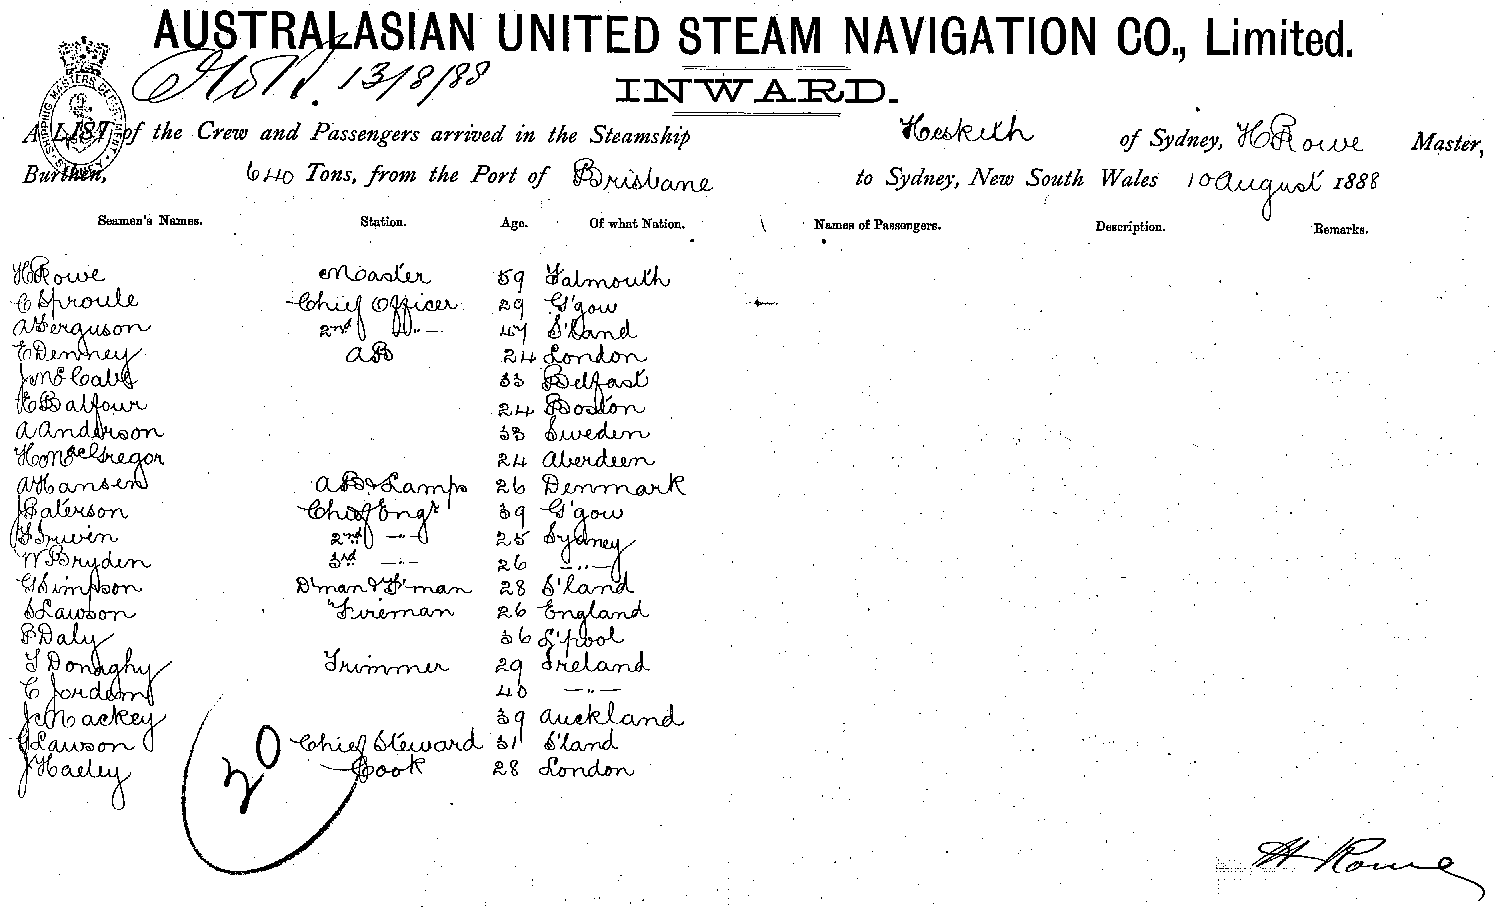 AUSTRALASIAN UNITED STEAM NAVIGATION CO., Limited.
13/8/88
INWARD.
SHIPPING MASTERS DEPARTMENT
A LIST of the Crew and Passengers arrived in the Steamship Hesketh of Sydney, H Rowe Master,
Burthen, 640 Tons, from the Port of Brisbane to Sydney, New South Wales 10 August 1888
Seamen's Names. Station. Age. Of what Nation. Names of Passengers. Description. Remarks.
H Rowe Master 59 Falmouth
C Sproule Chief Officer 29 G'gow
A Ferguson 2nd -"- 47 S'land
E Denney AB 24 London
J McCabe 33 Belfast
H Balfour 24 Boston
A Anderson 33 Sweden
H McGregor 24 Aberdeen
A Hansen AB & Lamps 26 Denmark
J Paterson Chief Engr 39 G'gow
Irwin 2nd -"- 25 Sydney
W Bryden 3rd -"- 26 -"-
G Simpson D'man & F'man 28 S'land
S Lawson Fireman 26 England
P Daly 36 L'pool
T Donaghy Trimmer 29 Ireland
C Jordan 40 -"-
J Mackey 39 Auckland
G Lawson Chief Steward 31 S'land
J Haley Cook 28 London
20
H Rowe